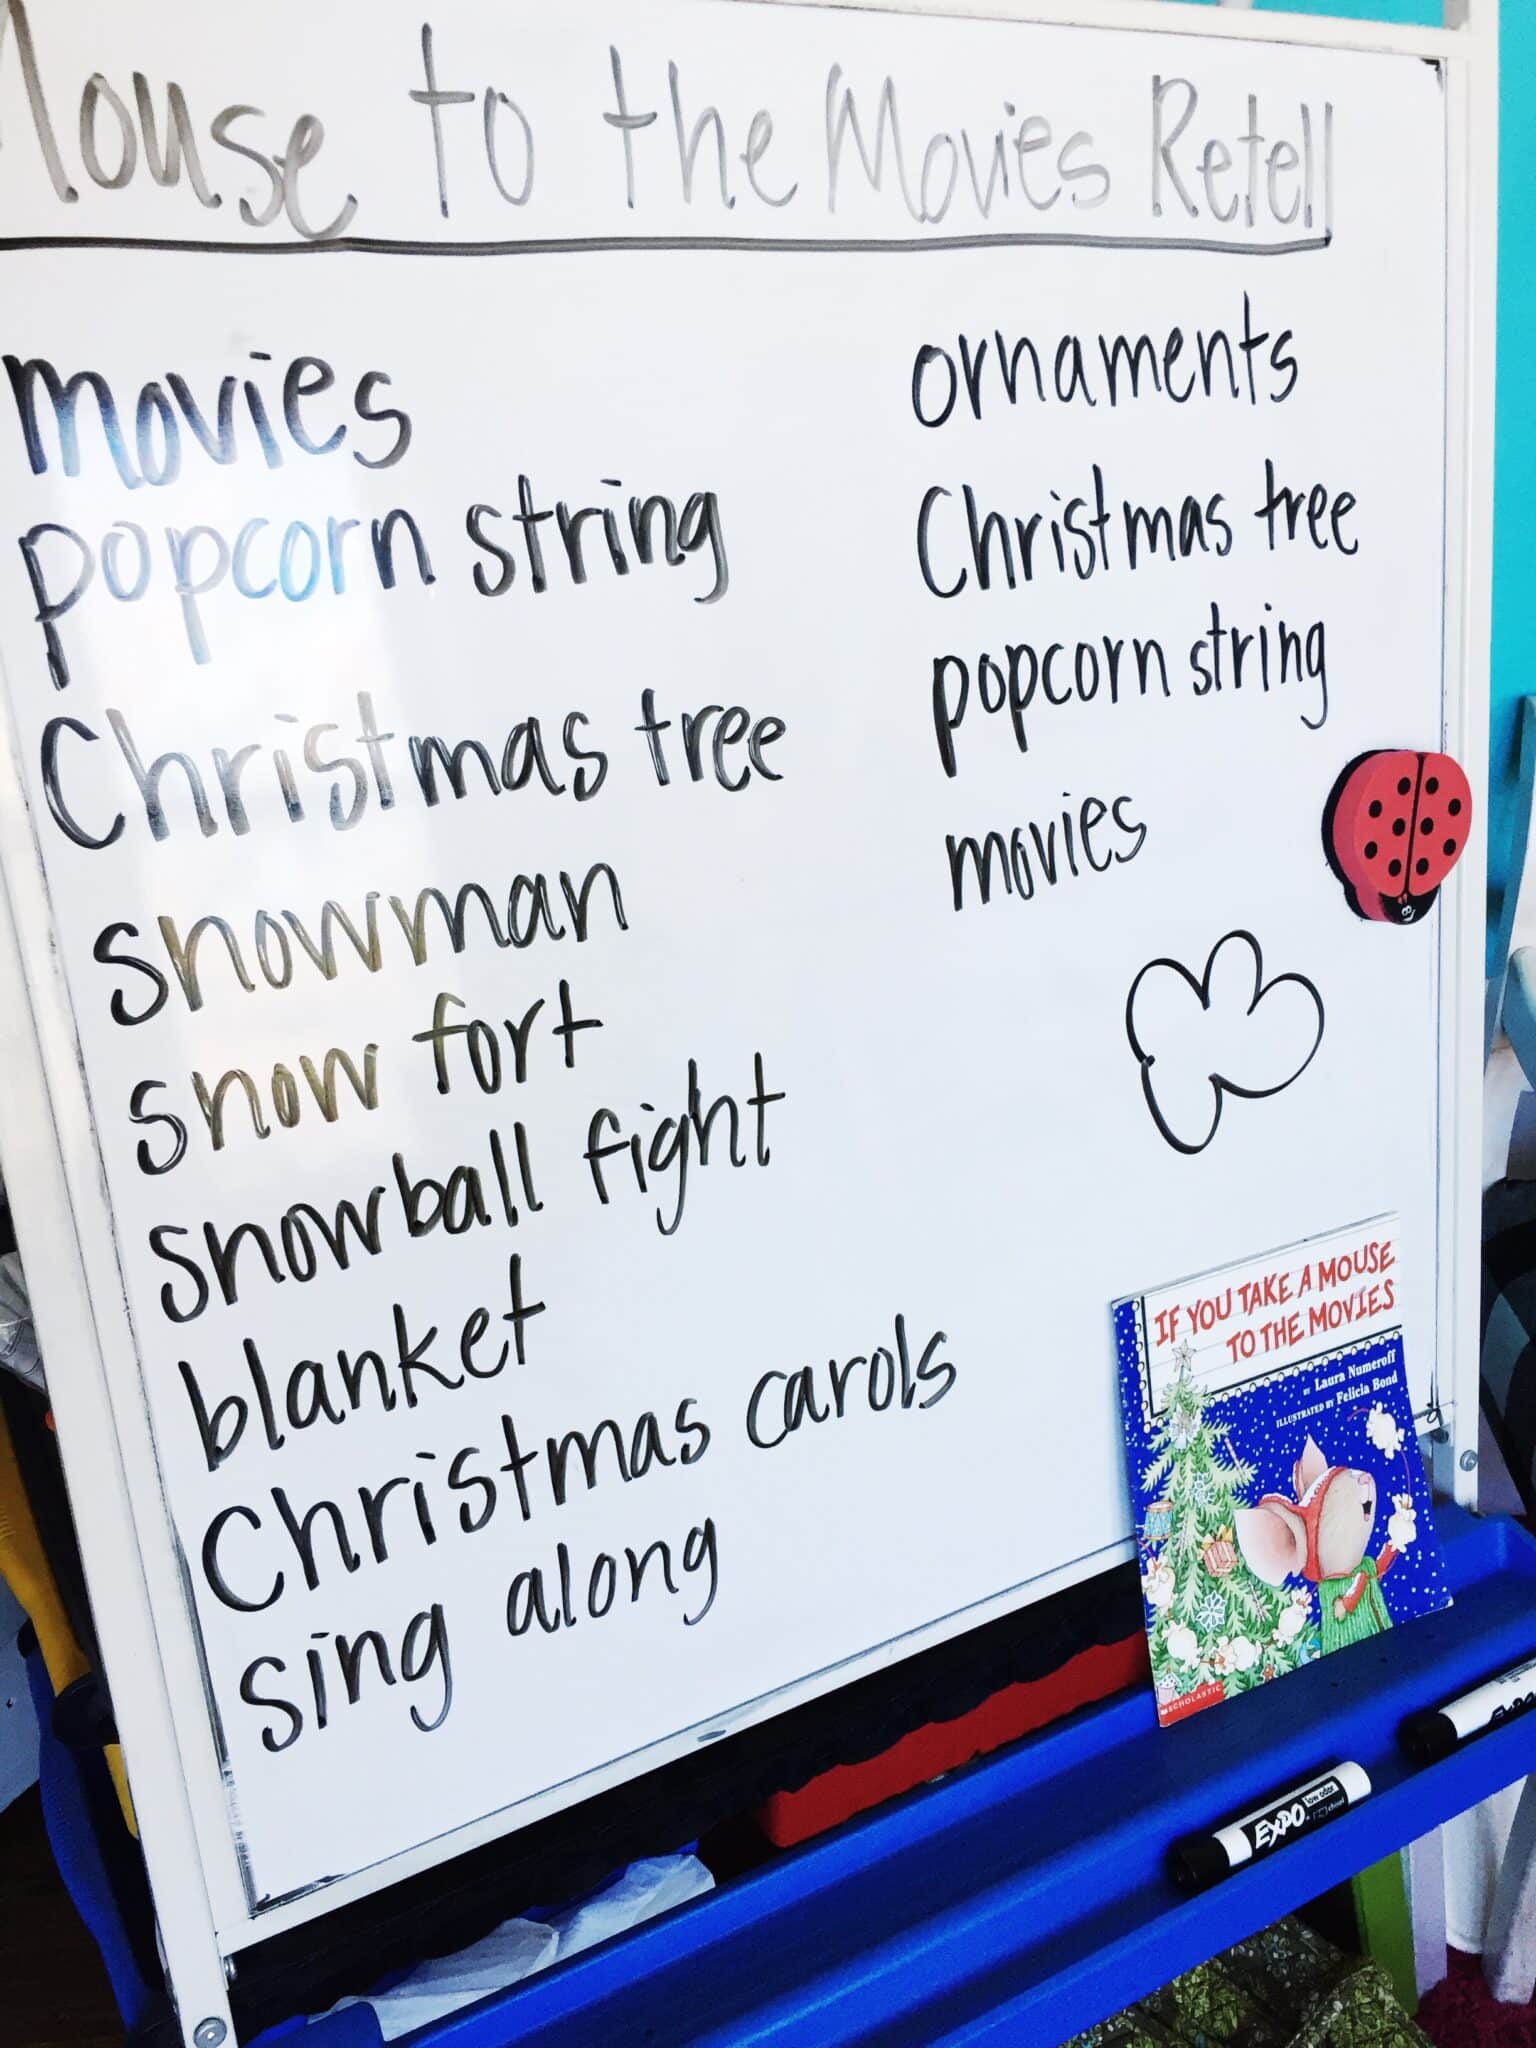 Mouse to the Movies Retell
movies
popcorn string
Christmas tree
snowman
snow fort
snowball fight
blanket
Christmas carols
sing along
ornaments
Christmas tree
popcorn string
movies
IF YOU TAKE A MOUSE
TO THE MOVIES
BY Laura Numeroff
ILLUSTRATED BY Felicia Bond
SCHOLASTIC
EXPO
low odor
EXPO